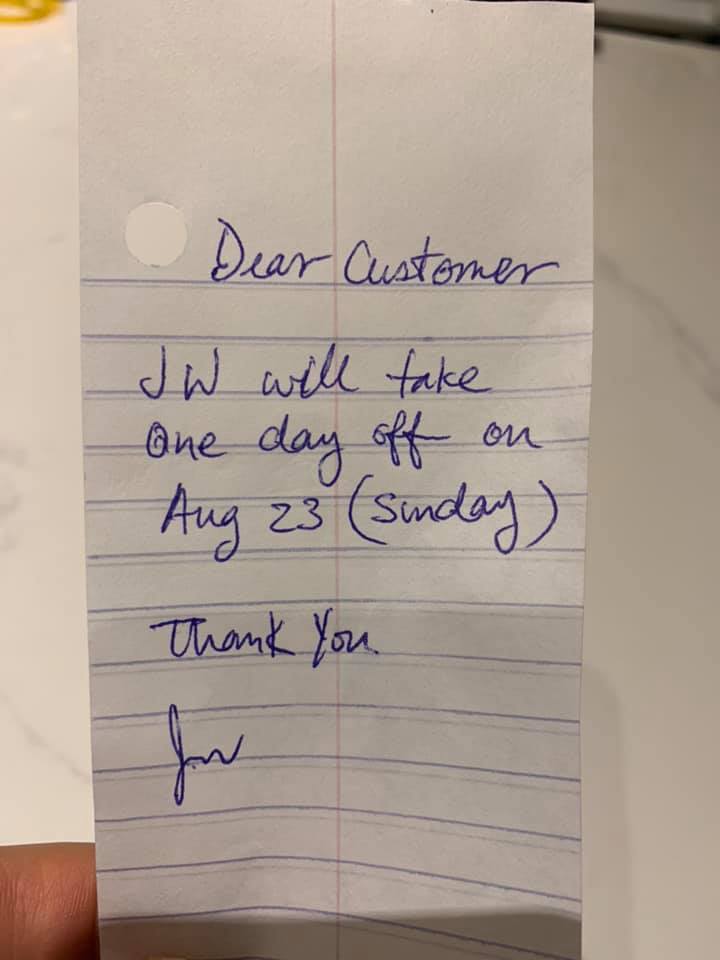 Dear Customer
JW will take
one day off on
Aug 23 (Sunday)
Thank You.
JW